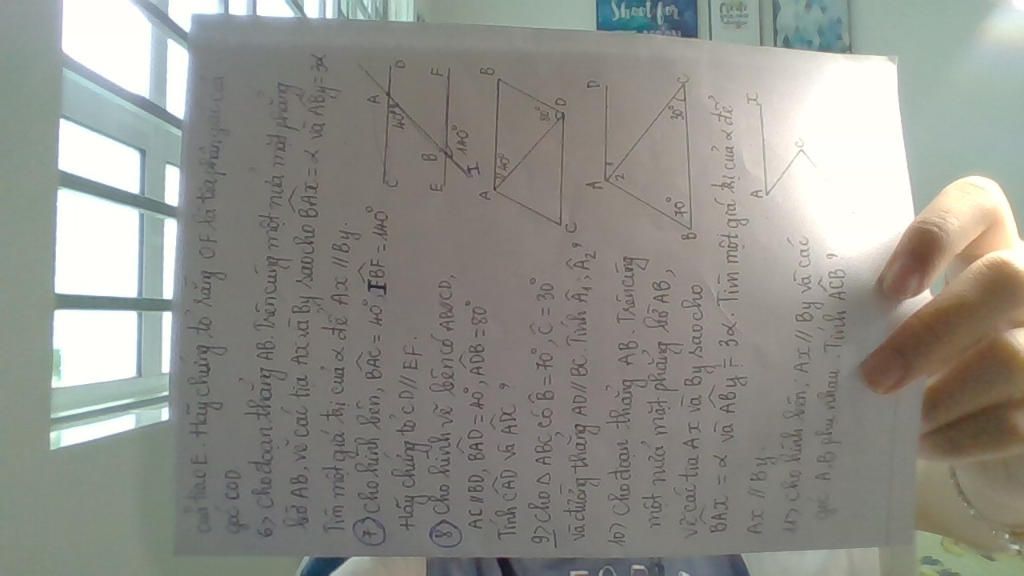 của tia OE. Hãy chứng tỏ rằng OF là tia phân giác của
góc COD
6) Cho đoạn thẳng AB. Trên cùng một nửa mặt phẳng
bờ AB. vẽ các tia Ax và By sao cho BAx = α và ABy = 3α
Tìm một giá trị của α để Ax // By.
7) Cho hình bên, BAC = 40° IBF = 140°
Hãy chứng tỏ CD // EF.
8) Cho hình vẽ bên có AB // CD,
AC // BD, BAD = 40°, ADB = 80°
Tính CAD và ADC ?
9) Cho △ ABC có B = 70°, C = 30°
và đường thẳng AD // BC. Tính A1, A2 ?
10) Cho đoạn thẳng AB. Trên cùng
một nửa mặt phẳng bờ AB,
vẽ các tia Ax và By sao cho
BAx = α và ABy = 3α. Tìm một giá trị của α để
Ax // By.
11) Cho hình bên. Ax // By và các
góc A, B phụ nhau. Tính ACB ?
C A D
40°
E B F
140°
I
A B
40°
80°
C D
A D
1
2
70° 30°
B C
A x
C
Shoot for